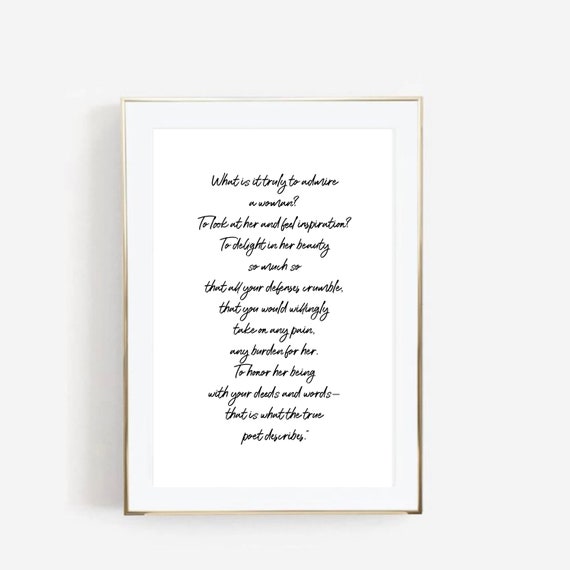 What is it truly to admire
a woman?
To look at her and feel inspiration?
To delight in her beauty
so much so
that all your defenses crumble,
that you would willingly
take on any pain,
any burden for her.
To honor her being
with your deeds and words—
that is what the true
poet describes."